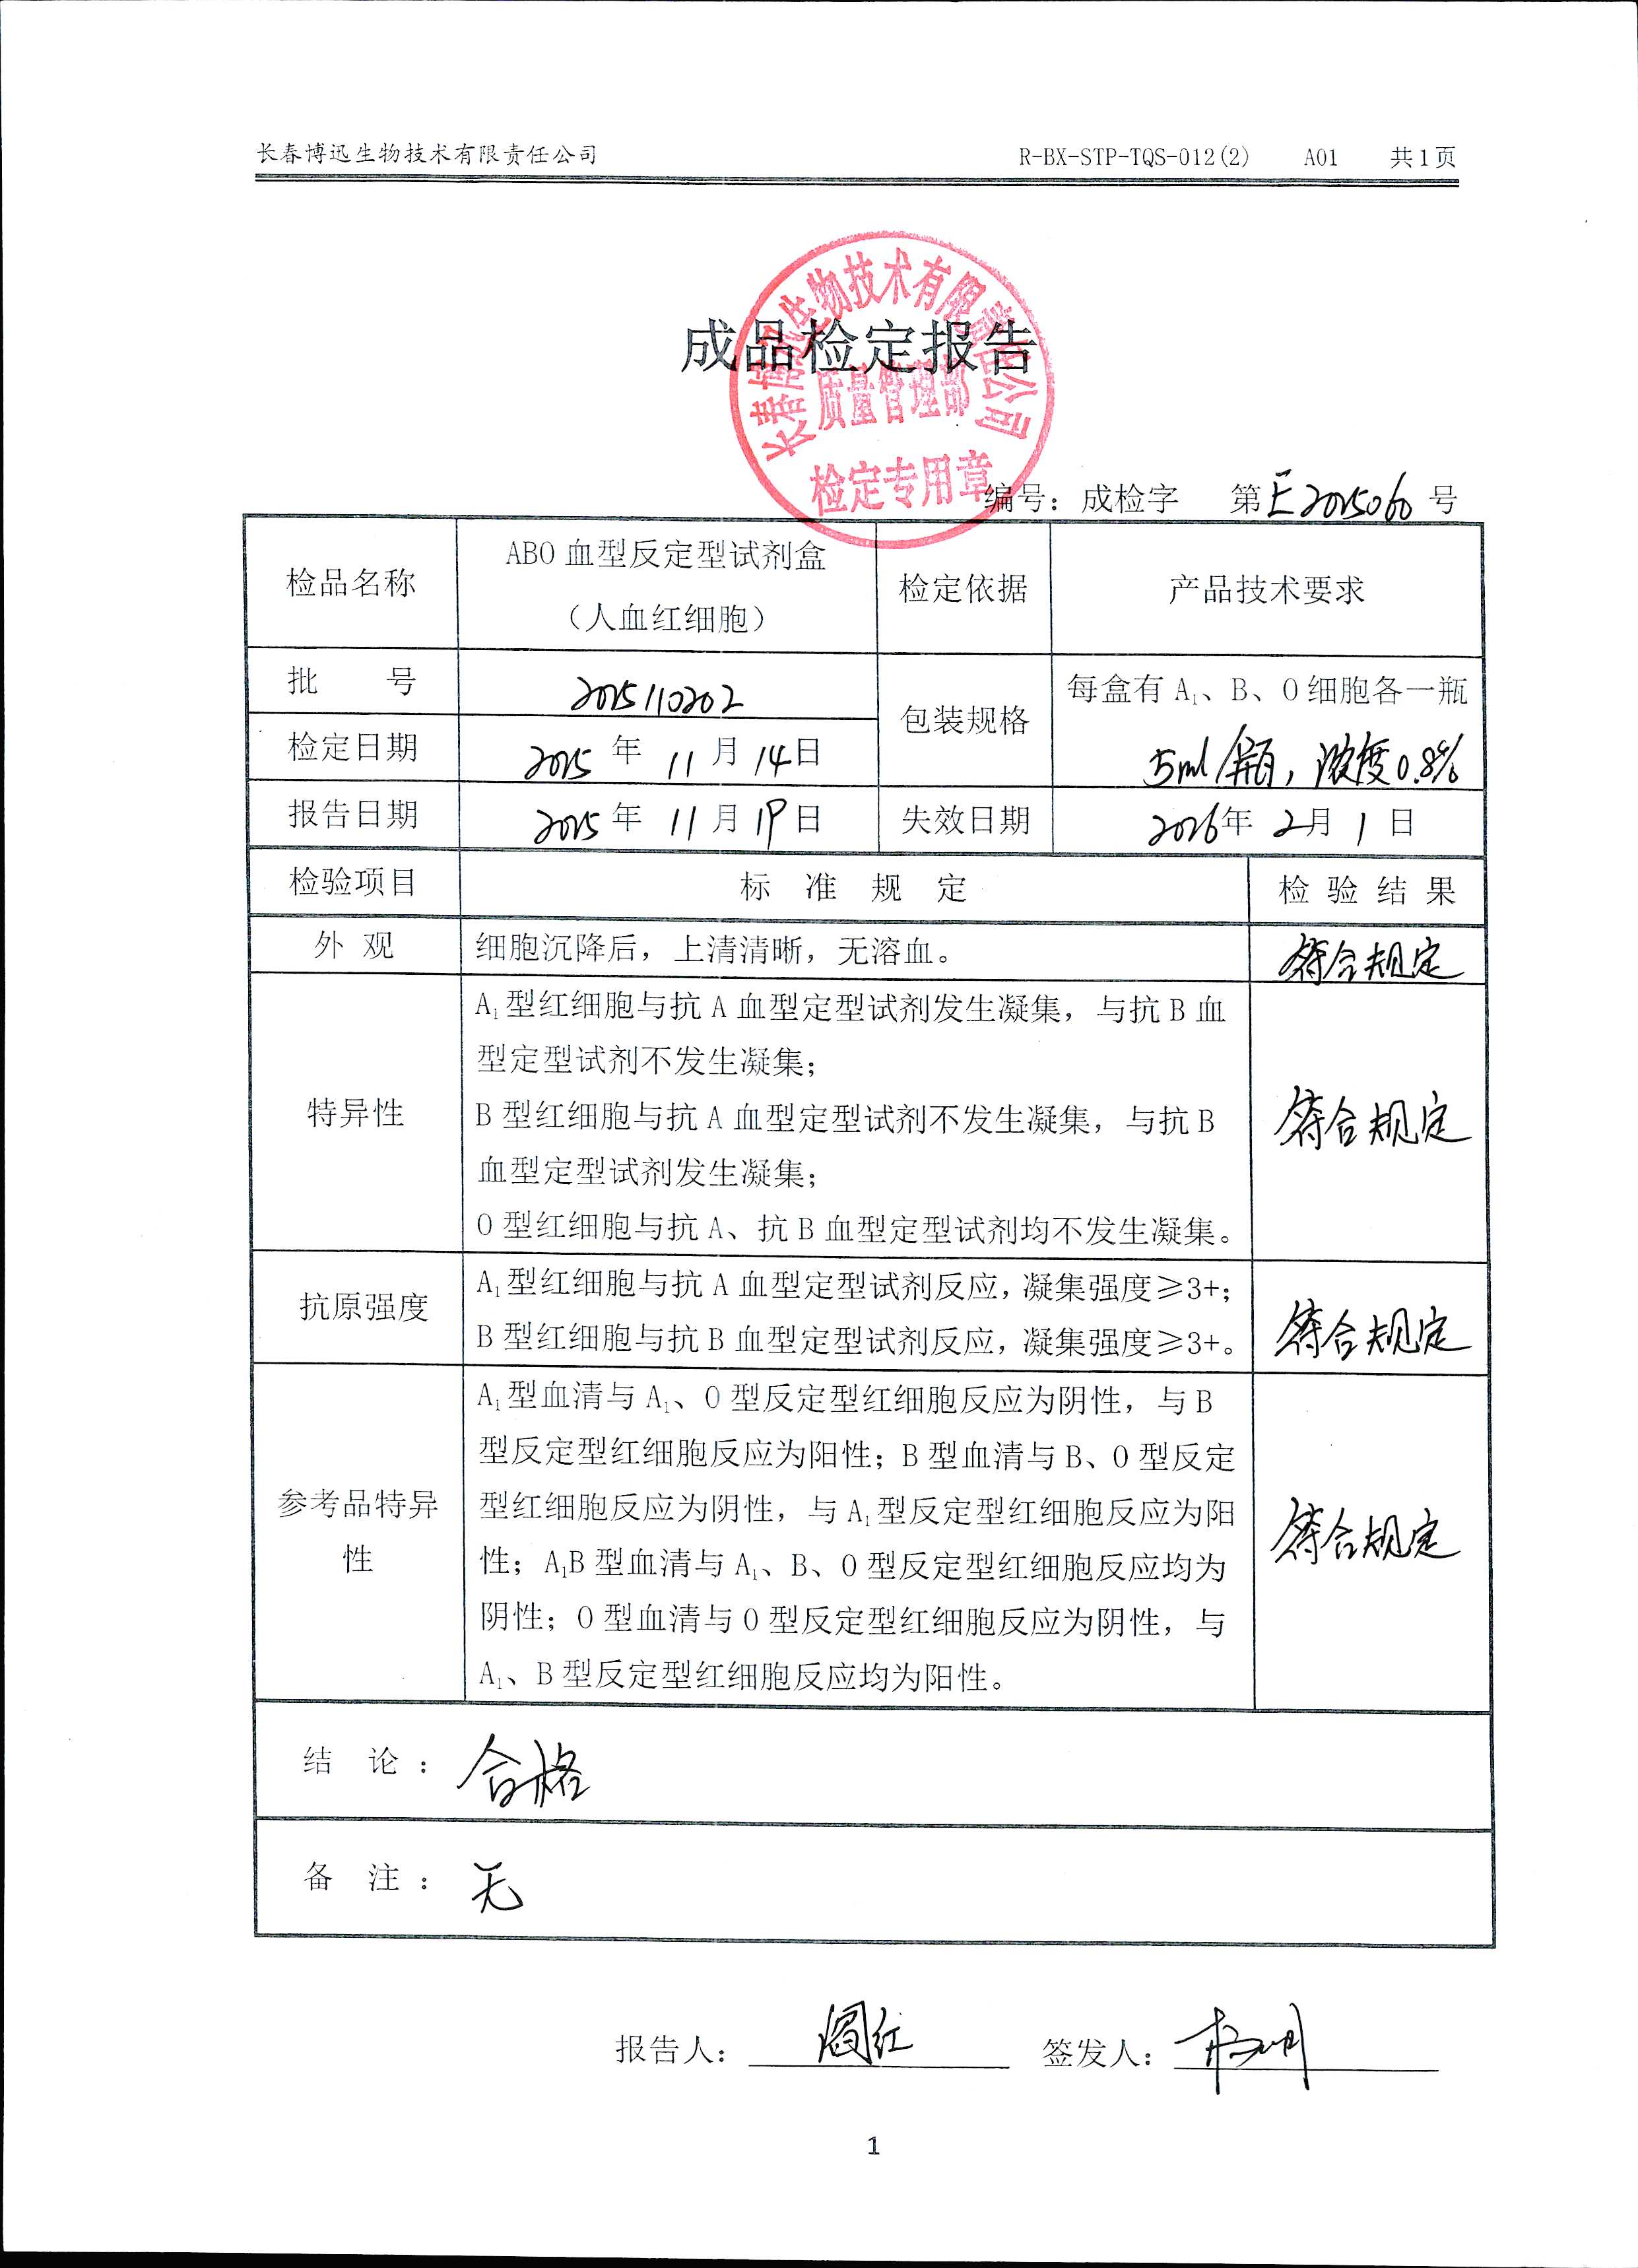 长春博迅生物技术有限责任公司 R-BX-STP-TQS-012(2) A01 共1页
长春博迅生物技术有限责任公司
成品检定报告
质量管理部
检定专用章
编号：成检字 第E2015060号
检品名称 ABO血型反定型试剂盒（人血红细胞） 检定依据 产品技术要求
批 号 2015110202 包装规格 每盒有A₁、B、O细胞各一瓶
5ml/瓶，浓度0.8%
检定日期 2015年11月14日
报告日期 2015年11月19日 失效日期 2016年2月1日
检验项目 标 准 规 定 检 验 结 果
外 观 细胞沉降后，上清清晰，无溶血。 符合规定
特异性 A₁型红细胞与抗A血型定型试剂发生凝集，与抗B血
型定型试剂不发生凝集；
B型红细胞与抗A血型定型试剂不发生凝集，与抗B 符合规定
血型定型试剂发生凝集；
O型红细胞与抗A、抗B血型定型试剂均不发生凝集。
抗原强度 A₁型红细胞与抗A血型定型试剂反应，凝集强度≥3+；
B型红细胞与抗B血型定型试剂反应，凝集强度≥3+。 符合规定
A₁型血清与A₁、O型反定型红细胞反应为阴性，与B
型反定型红细胞反应为阳性；B型血清与B、O型反定
参考品特异性 型红细胞反应为阴性，与A₁型反定型红细胞反应为阳 符合规定
性；A₁B型血清与A₁、B、O型反定型红细胞反应均为
阴性；O型血清与O型反定型红细胞反应为阴性，与
A₁、B型反定型红细胞反应均为阳性。
结 论：合格
备 注：无
报告人：阎红 签发人：
1